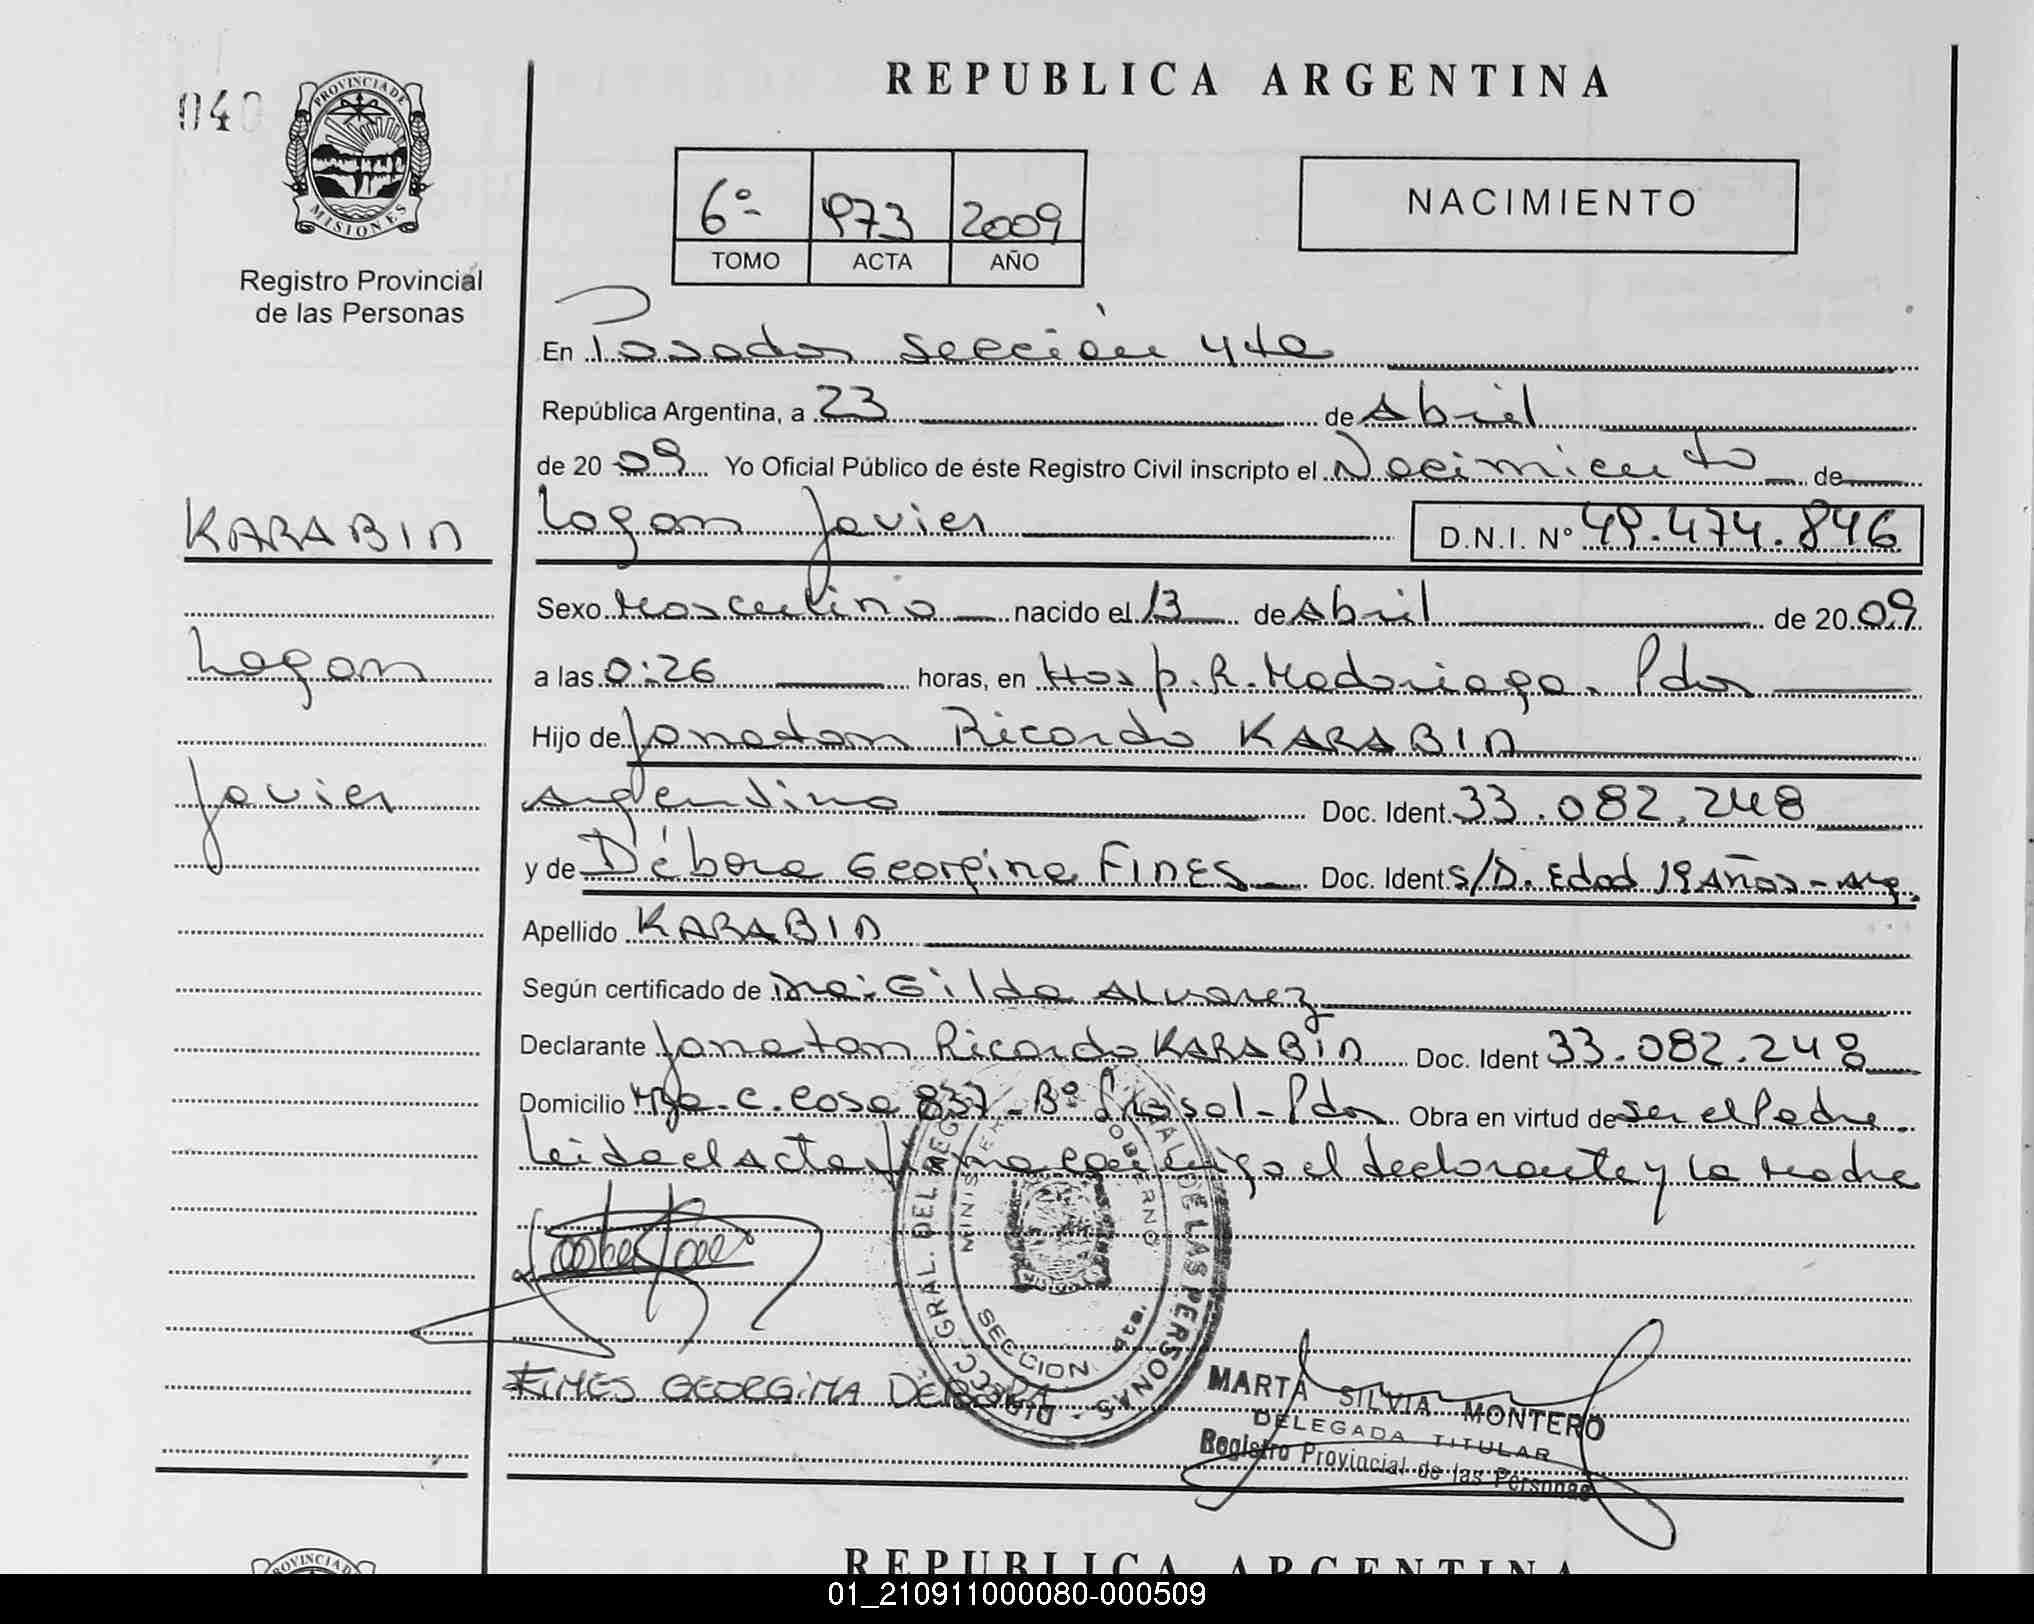 REPUBLICA ARGENTINA
040
PROVINCIA DE
MISIONES
Registro Provincial
de las Personas
6º- 973 2009
TOMO ACTA AÑO
NACIMIENTO
En Posadas sección 4ta
República Argentina, a 23 de Abril
de 20 09 Yo Oficial Público de éste Registro Civil inscripto el Nacimiento de
KARABIN
Logan Javier D.N.I. Nº 49.474.846
Sexo Masculino nacido el 13 de Abril de 20 09
Logan
a las 0:26 horas, en Hosp. R. Madariaga. Pdas
Hijo de Jonatan Ricardo KARABIN
Javier
Argentino Doc. Ident. 33.082.248
y de Débora Georgina FINES Doc. Ident S/D. Edad 19 Años - Arg.
Apellido KARABIN
Según certificado de Dra: Gilda Alvarez
Declarante Jonatan Ricardo KARABIN Doc. Ident 33.082.248
Domicilio Mza. C. Casa 837 - Bº Prosol - Pdas Obra en virtud de ser el Padre.
Leida el Acta firma conmigo el declarante y la Madre
DIRECC. GRAL. DEL REG DE LAS PERSONAS
GOBIERNO
SECCION 4ta.
FINES GEORGINA DEBORA
MARTA SILVIA MONTERO
DELEGADA TITULAR
Registro Provincial de las Personas
REPUBLICA ARGENTINA
01_210911000080-000509